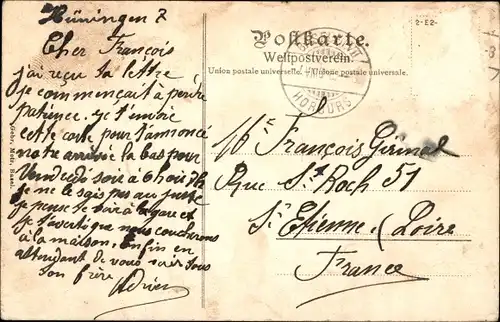 Hüningen 7
Cher François
j'ai reçu ta lettre
je commençait à perdre
patience. je t'envoie
cette carte pour t'annoncé
notre arrivée la bas pour
Vendredi soir à 6 hoir 7h
je ne le sais pas au juste
je pense te voir à la gare et
je t'avertis que nous coucherons
à la maison. Enfin en
attendant de vous voir tous
ton frère Adrien
Gebr. Metz, Basel.
Postkarte.
Weltpostverein.
Union postale universelle. – Unione postale universale.
HORBURG
2-E2-
Mr François
Rue St Roch 51
St Etienne (Loire
France